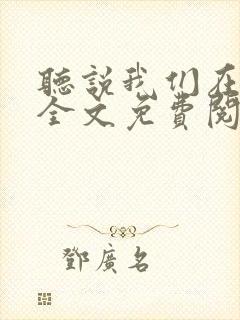 聽說我们在
全文免費閱
鄧廣名